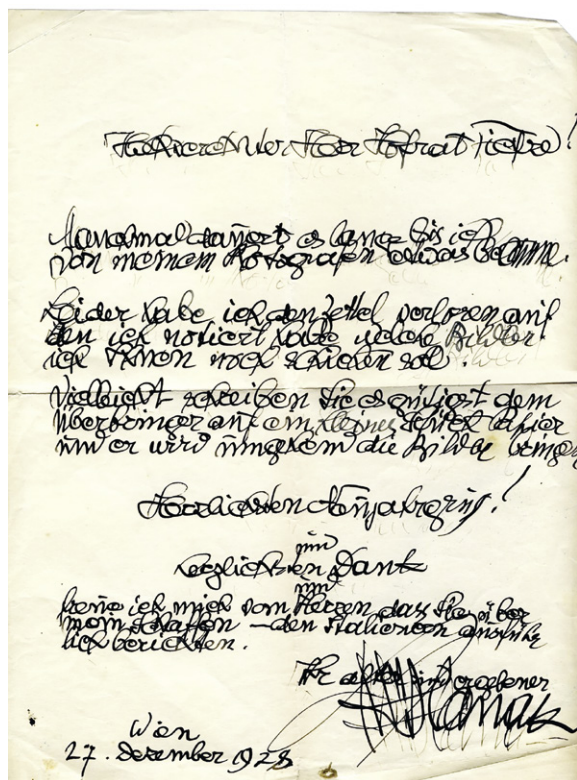 Hochverehrter Herr Hofrat Tietze!
Manchmal dauert es lange bis ich
von meinem Fotografen etwas bekomme.
Leider habe ich den Zettel verloren auf
den ich notiert habe welche Bilder
ich Ihnen noch schicken sol.
Vielleicht schreiben Sie es gütigst dem
Überbringer auf ein kleines Stück Papier
und er wird umgehend die Bilder bringen
Herzlichsten Neujahrsgruß!
und
herzlichsten Dank
und
freue ich mich vom Herzen das Sie über
mein Schaffen – den Italienern ausführ
lich berichten.
Ihr alter und ergebener
Hanak
Wien
27. Dezember 1928